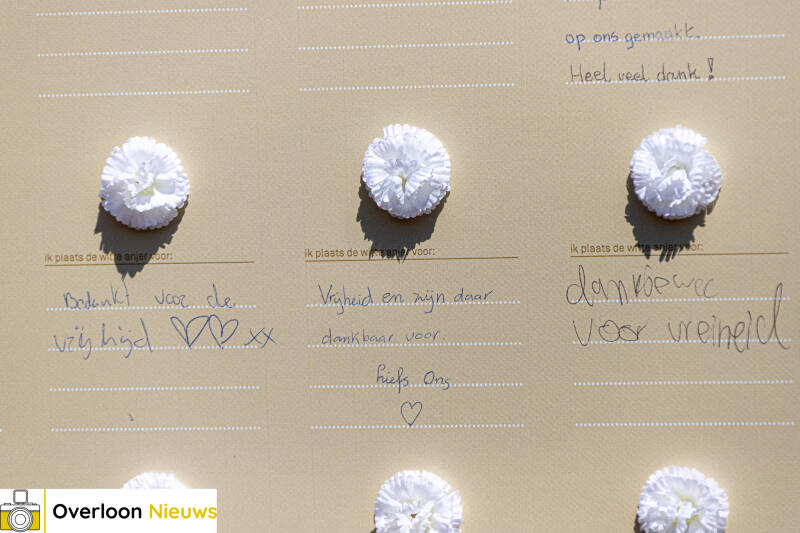 op ons gemaakt.
Heel veel dank!
ik plaats de witte anjer voor:
Bedankt voor de
vrijhijd ♡♡ xx
ik plaats de witte anjer voor:
Vrijheid en zijn daar
dankbaar voor.
Liefs Ons
♡
ik plaats de witte anjer voor:
voor vreiheid
Overloon Nieuws